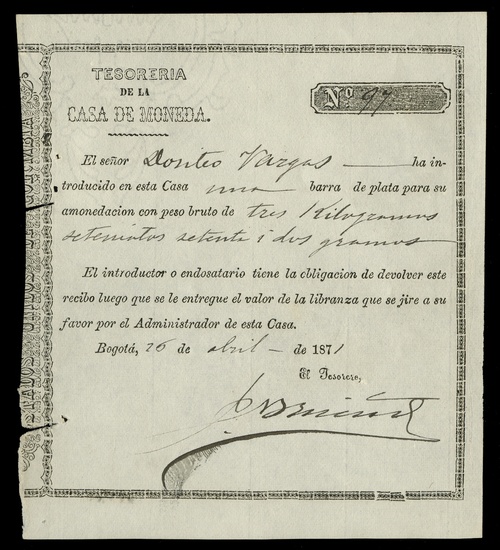 TESORERIA
DE LA
CASA DE MONEDA.
Nº 97
El señor Dositeo Vargas ha in-
troducido en esta Casa una barra de plata para su
amonedacion con peso bruto de tres Kilogramos
setenta i dos gramos
El introductor o endosatario tiene la obligacion de devolver este
recibo luego que se le entregue el valor de la libranza que se jire a su
favor por el Administrador de esta Casa.
Bogotá, 26 de abril de 1871
El Tesorero,
ESTADOS UNIDOS DE COLOMBIA